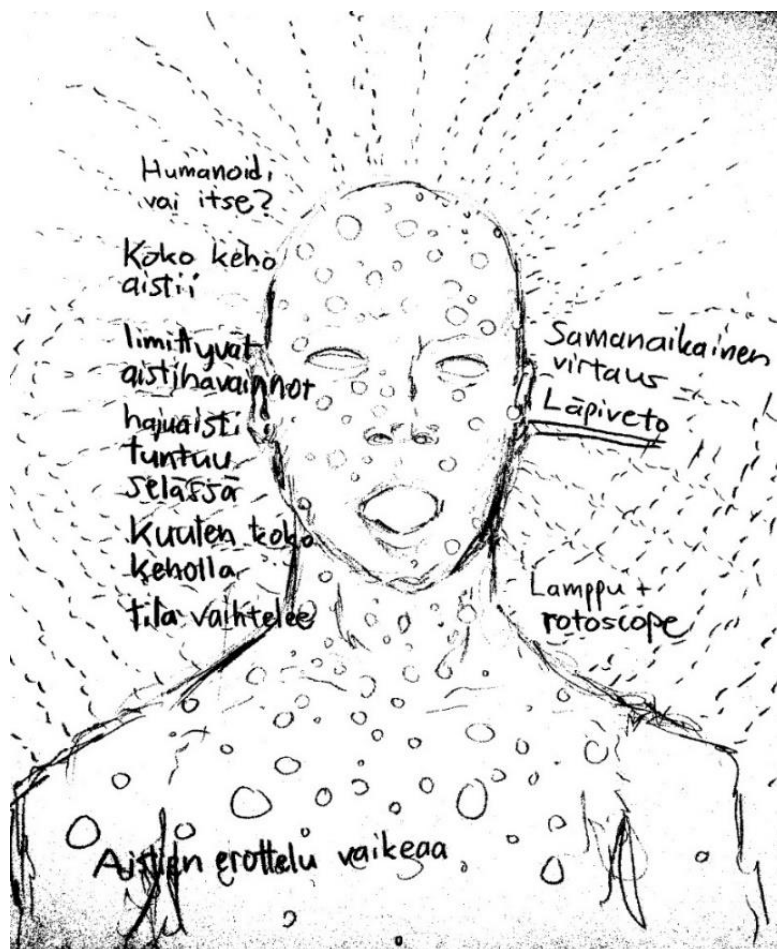 Humanoidi
vai itse?
Koko keho
aistii
limittyvät
aistihavainnot
hajuaisti
tuntuu
selässä
Kuulen koko
keholla
tila vaihtelee
Samanaikainen
virtaus
Läpiveto
Lamppu +
rotoscope
Aistien erottelu vaikeaa